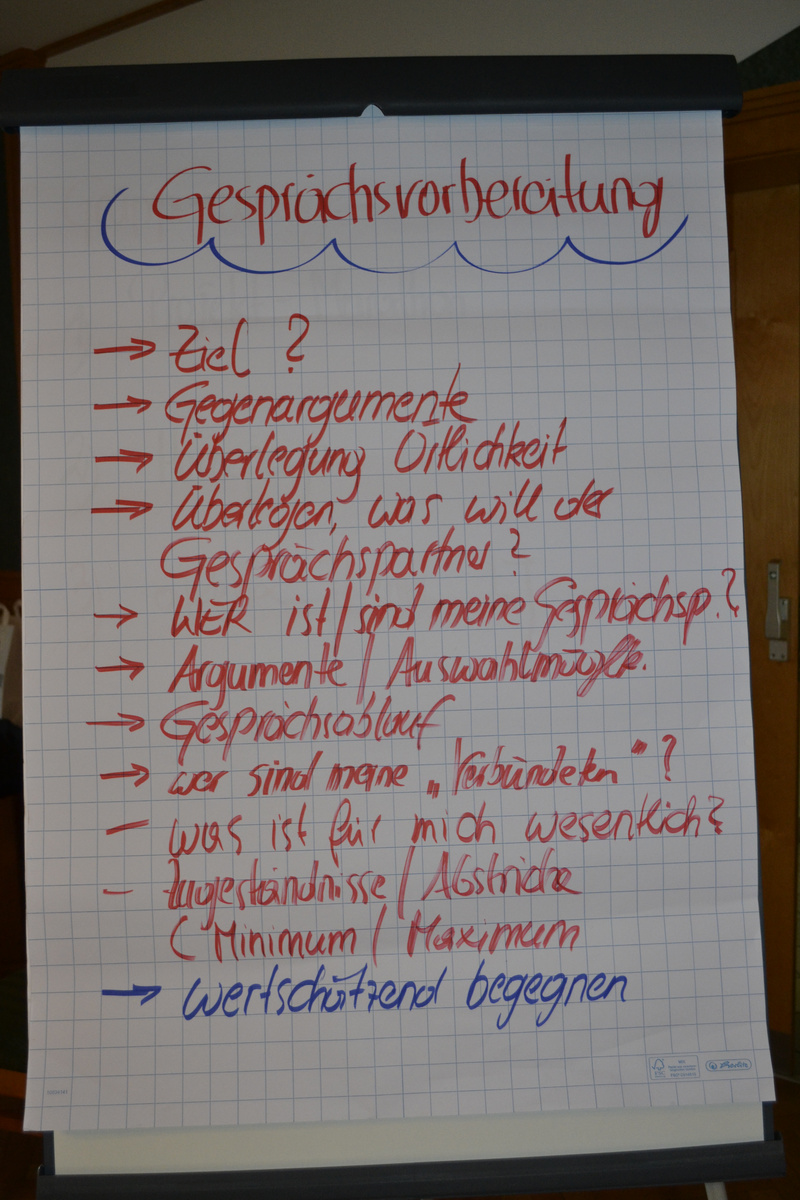 Gesprächsvorbereitung
→ Ziel ?
→ Gegenargumente
→ Überlegung Örtlichkeit
→ Überlegen, was will der
Gesprächspartner ?
→ WER ist / sind meine Gesprächsp. ?
→ Argumente / Auswahlmöglk.
→ Gesprächsablauf
→ wer sind meine „Verbündeten" ?
– was ist für mich wesentlich ?
– Zugeständnisse / Abstriche
( Minimum / Maximum
→ wertschätzend begegnen